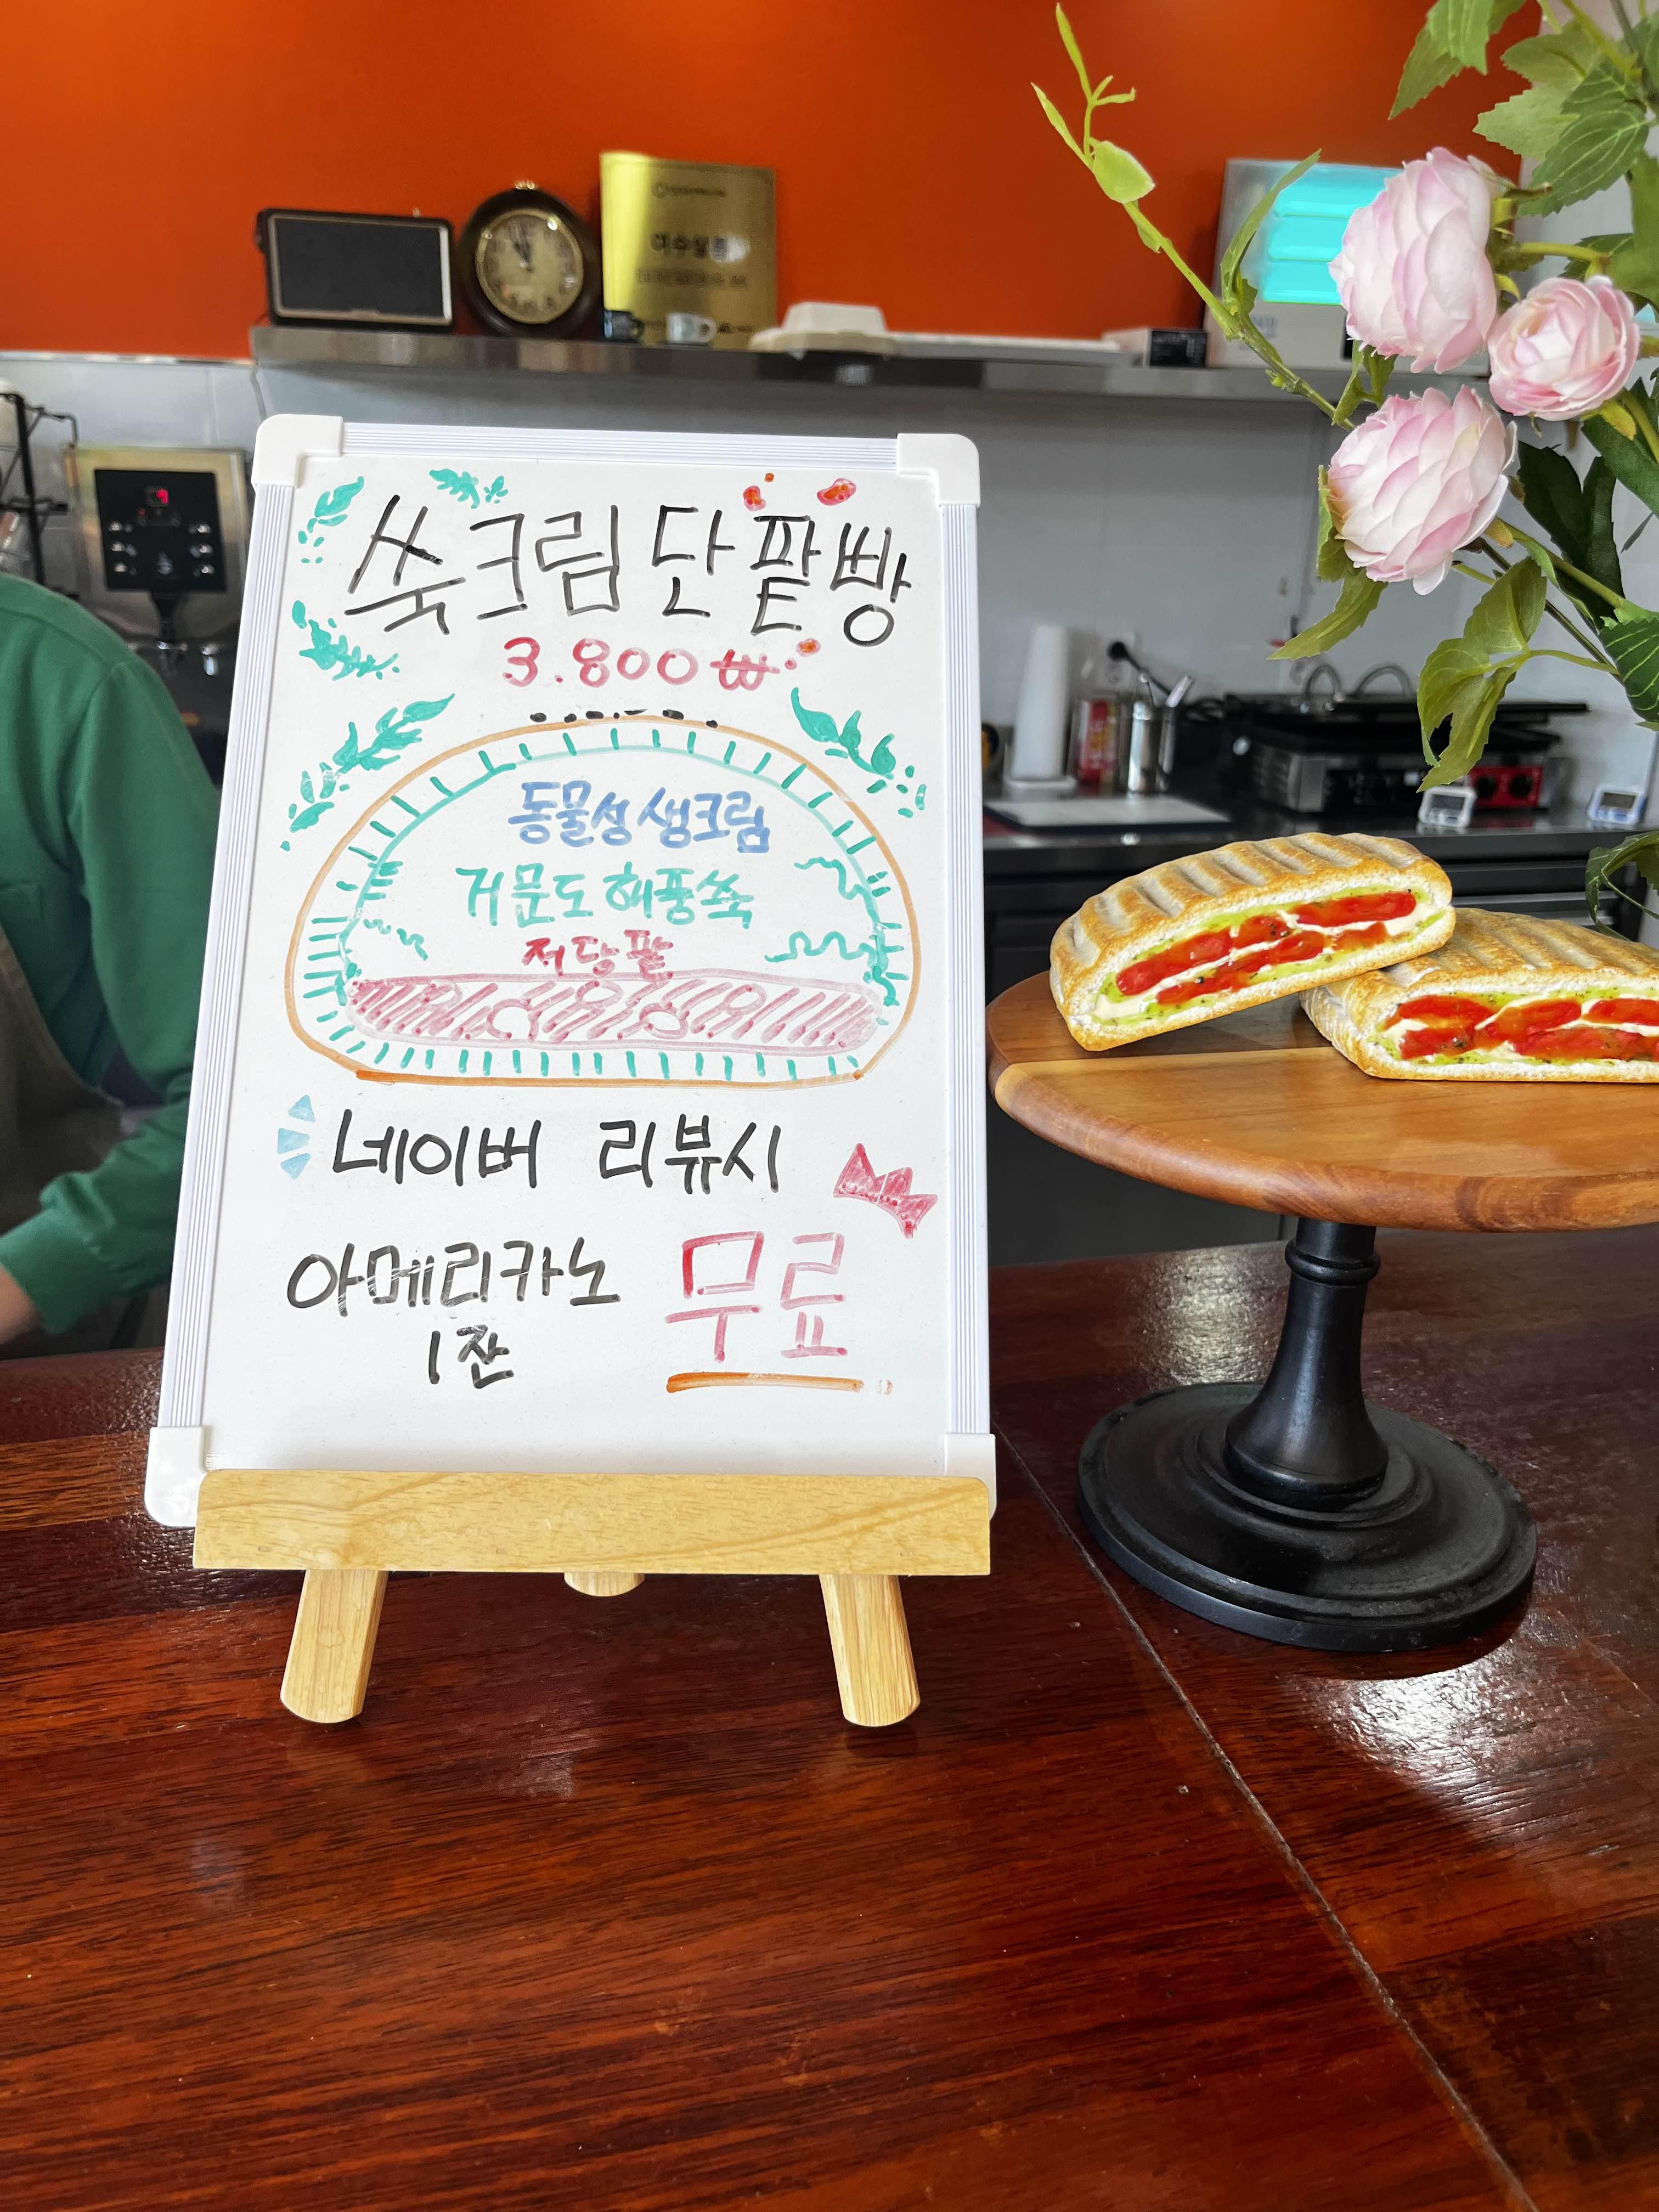 쑥크림 단팥빵
3.800₩
동물성 생크림
거문도 해풍쑥
저당팥
네이버 리뷰시
아메리카노 무료
1잔